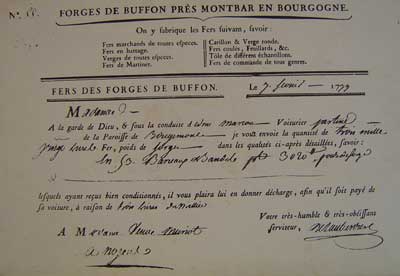 FORGES DE BUFFON PRÈS MONTBAR EN BOURGOGNE.
On y fabrique les Fers suivant, savoir :
Fers marchands de toutes especes.
Fers en battage.
Verges de toutes especes.
Fers de Martinet.
Carillon & Verge ronde.
Fers coulés, Feuillards, &c.
Tôle de différens échantillons.
Fers de commande de tous genres.
FERS DES FORGES DE BUFFON.
Le 7 avril 1779
Madame
A la garde de Dieu, & sous la conduite d'Edme Voiturier
de la Paroisse de je vous envoie la quantité de trois mille
vingt livres Fer, poids de forge dans les qualités ci-après détaillées, savoir :
en 53 Barreaux Bandelle 3020
lesquels ayant reçus bien conditionnés, il vous plaira lui en donner décharge, afin qu'il soit payé de
sa voiture, à raison de trois livres
Votre très-humble & très-obéissant
serviteur,
A Madame Veuve
a